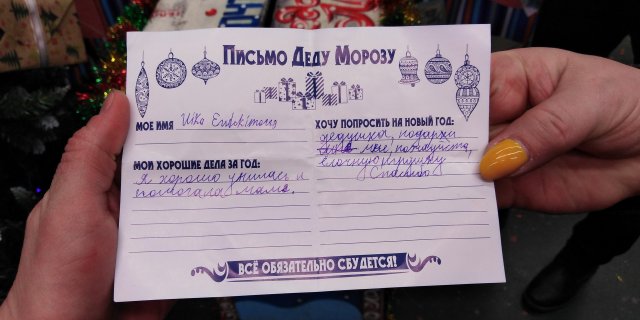 ПИСЬМО ДЕДУ МОРОЗУ
МОЕ ИМЯ
МОИ ХОРОШИЕ ДЕЛА ЗА ГОД:
Я хорошо училась и
помогала маме.
ХОЧУ ПОПРОСИТЬ НА НОВЫЙ ГОД:
дедушка, подари
мне, пожалуйста,
елочную игрушку
Спасибо
ВСЁ ОБЯЗАТЕЛЬНО СБУДЕТСЯ!